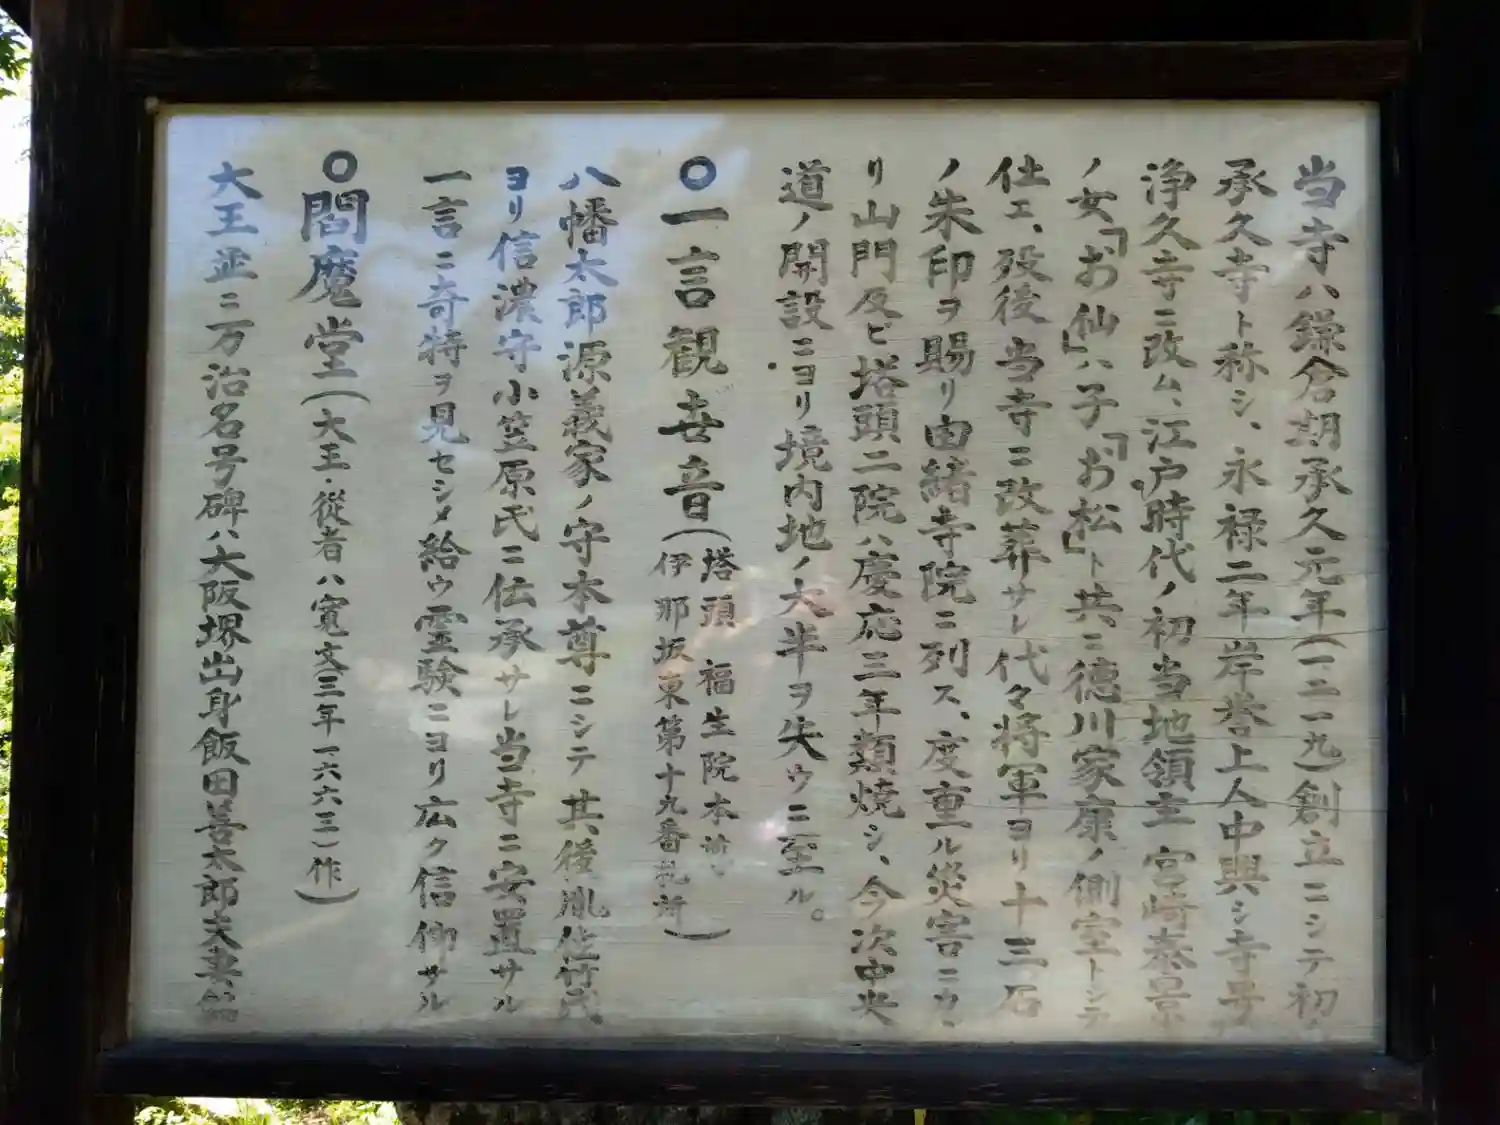 当寺ハ鎌倉期承久元年(一二一九)創立ニシテ初メ
承久寺ト称シ、永禄二年岸誉上人中興シ寺号
浄久寺ニ改ム、江戸時代ノ初当地領主宮崎泰景
ノ女「お仙」ハ子「お松」ト共ニ徳川家康ノ側室トシテ
仕エ、歿後当寺ニ改葬サレ代々将軍ヨリ十三石
ノ朱印ヲ賜リ由緒寺院ニ列ス、度重ル災害ニカヽ
リ山門及ビ塔頭二院ハ慶応三年類焼シ、今次中央
道ノ開設ニヨリ境内地ノ大半ヲ失ウニ至ル。
○一言観世音(塔頭 福生院本
伊那坂東第十九番札所)
八幡太郎源義家ノ守本尊ニシテ其後胤佐竹氏
ヨリ信濃守小笠原氏ニ伝承サレ当寺ニ安置サル
一言ニ奇特ヲ見セシメ給ウ霊験ニヨリ広ク信仰サル
○閻魔堂(大王・従者ハ寛文三年一六六三)作)
大王並ニ万治名号碑ハ大阪堺出身飯田善太郎夫妻